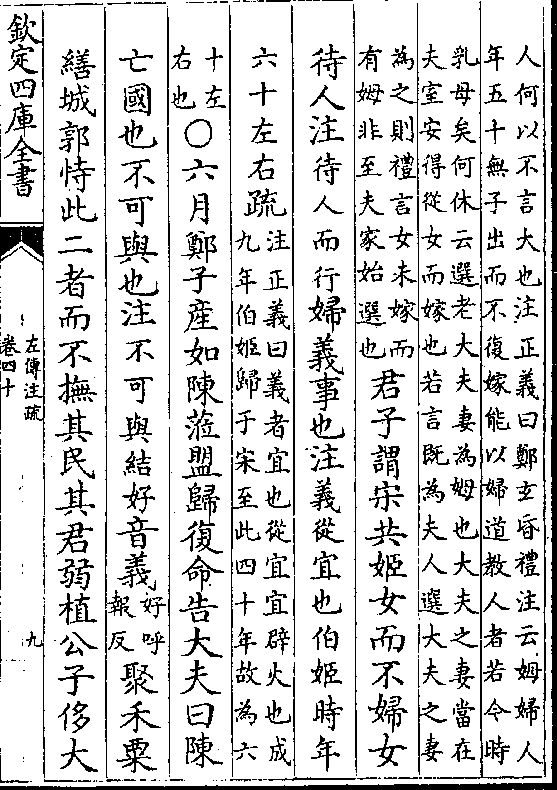 人何以不言大也注正義曰鄭玄昏禮注云姆婦人
年五十無子出而不復嫁能以婦道教人者若今時
乳母矣何休云選老大夫妻為姆也大夫之妻當在
夫室安得從女而嫁也若言既為夫人選大夫之妻
為之則禮言女未嫁而
有姆非至夫家始選也
君子謂宋共姬女而不婦女
待人注待人而行婦義事也注義從宜也伯姬時年
六十左右疏
注正義曰義者宜也從宜宜辟火也成
九年伯姬歸于宋至此四十年故為六
十左
右也
○六月鄭子産如陳蒞盟歸復命告大夫曰陳
亡國也不可與也注不可與結好音義
好呼
報反
聚禾粟
繕城郭恃此二者而不撫其民其君弱植公子侈大
欽定四庫全書
左傳注疏
卷四十
九